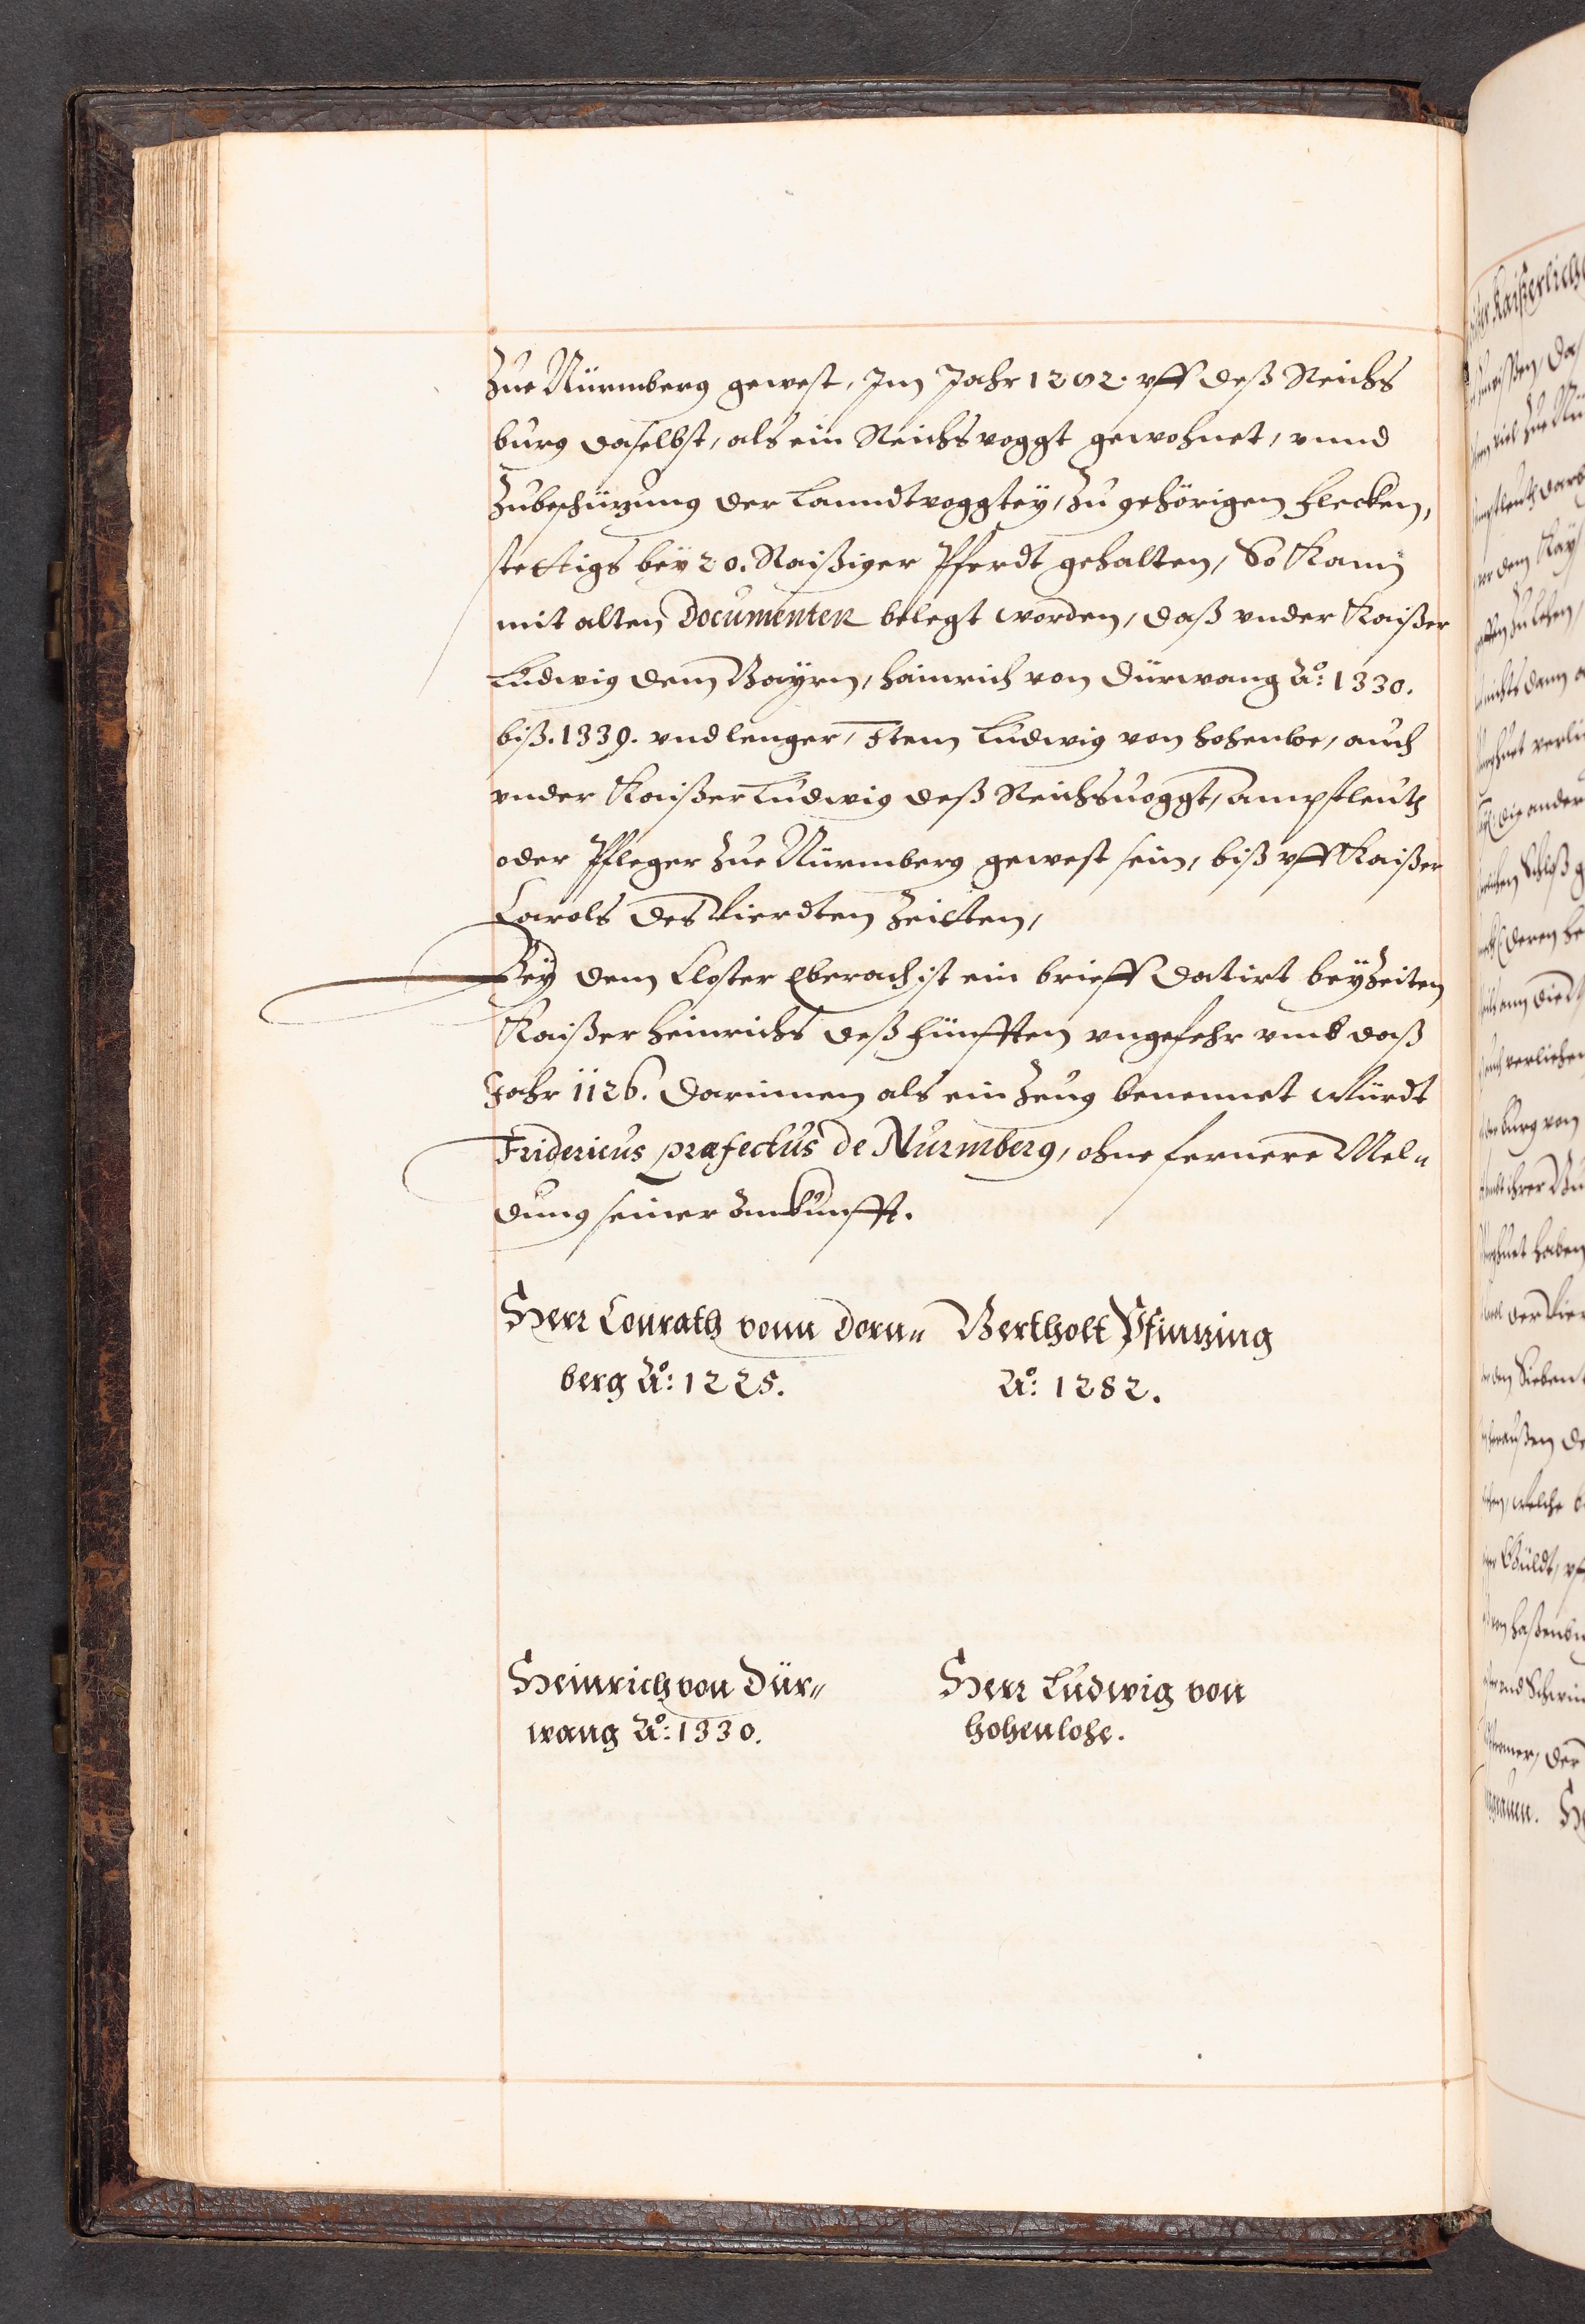 Zue Nürmberg gewest, Im Jahr 1282. vff deß Reichs
burg daselbst, als ein Reichsvoggt gewohnet, vnnd
Zubeschüzung der Lanndtvoggtey, zu gehörigen Flecken,
stettigs bey 20. Raißiger Pferdt gehalten, So kann
mit alten Documenten belegt worden, daß vnder Kaißer
Ludwig dem Bayrn, Hainrich von Dürwang Aº: 1330.
biß. 1339. vnd lenger, Item Ludwig von Hohenloe, auch
vnder Kaißer Ludwig deß Reichsuoggt, Ampstleuth
oder Pfleger Zue Nürmberg gewest sein, biß vff Kaißer
Carols des Vierdten Zeitten,
Bey dem Closter Eberach ist ein brieff datirt bey Zeiten
Kaißer Heinrichs deß Fünfften vngefehr vmb daß
Jahr 1126. darinnen als ein Zeug benennet würdt
Fridericus præfectus de Nurmberg, ohne fernere Mel„
dung seiner Ankunfft.
Herr Conrath vonn Dorn„
berg Aº: 1225.
Bertholt Pfintzing
Aº: 1282.
Heinrich von Dür„
wang Aº: 1330.
Herr Ludwig von
Hohenlohe.